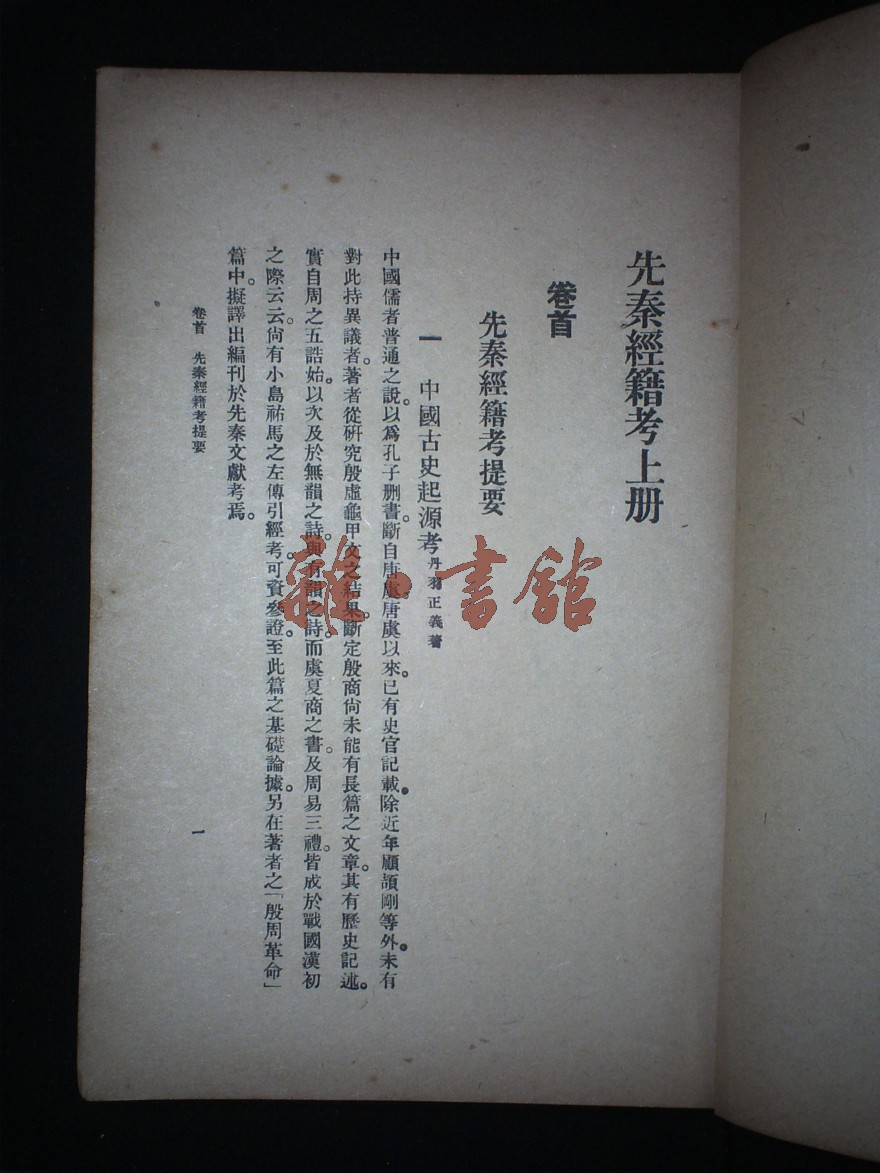 先秦經籍考上册
卷首
先秦經籍考提要
一 中國古史起源考 丹羽正義著
中國儒者普通之說。以爲孔子删書。斷自唐虞。唐虞以來。已有史官記載。除近年顧頡剛等外。未有
對此持異議者。著者從硏究殷虛龜甲文之結果。斷定殷商尙未能有長篇之文章。其有歷史記述。
實自周之五誥始。以次及於無韻之詩。與有韻之詩。而虞夏商之書。及周易三禮。皆成於戰國漢初
之際云云。尙有小島祐馬之左傳引經考。可資參證。至此篇之基礎論據。另在著者之「殷周革命」
篇中。擬譯出編刊於先秦文獻考焉。
卷首 先秦經籍考提要
一
雜·書館